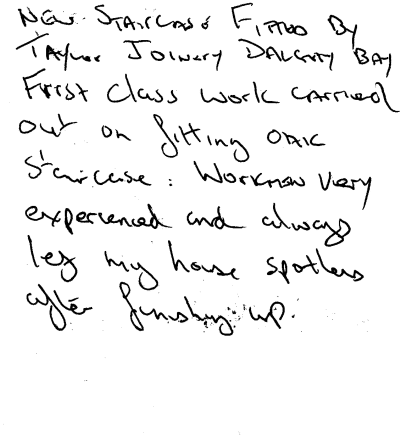 New Staircase Fitted By
Taylor Joinery Dalgety Bay
First class work carried
out on fitting oak
Staircase. Workmen very
experienced and always
left my house spotless
after finishing up.